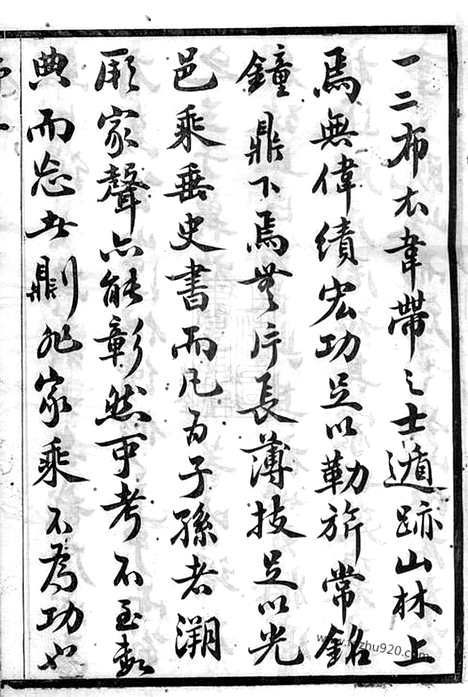 一二布衣韋帶之士遁跡山林上
焉無偉績宏功足以勒旂常銘
鐘鼎下焉無片長薄技足以光
邑乘垂史書而凡為子孫者溯
厥家聲亦能彰然可考不至數
典而忘世則非家乘不為功也